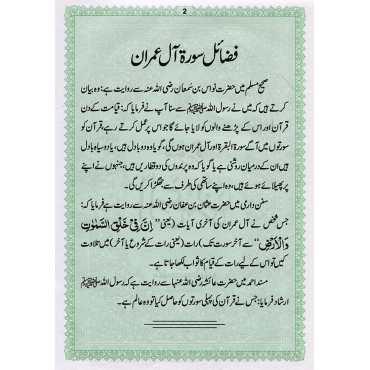 2
فضائل سورۃ آل عمران
صحیح مسلم میں حضرت نواس بن سمعان رضی اللہ عنہ سے روایت ہے: وہ بیان
کرتے ہیں کہ میں نے رسول اللہ ﷺ سے سنا آپ نے فرمایا کہ: قیامت کے دن
قرآن اور اس کے پڑھنے والوں کو لایا جائے گا جو اس پر عمل کرتے رہے، قرآن کو
سورتوں میں آگے سورۃ البقرۃ اور آل عمران ہوں گی، گویا وہ دو بادل ہیں، یا دو سیاہ بادل
ہیں ان کے درمیان روشنی ہے یا گویا کہ وہ پرندوں کی دو قطاریں ہیں، جنہوں نے اپنے
پر پھیلائے ہوئے ہیں، وہ اپنے ساتھی کی طرف سے جھگڑا کریں گی۔
سنن دارمی میں حضرت عثمان بن عفان رضی اللہ عنہ سے روایت ہے فرمایا کہ:
جس شخص نے آل عمران کی آخری آیات (یعنی" إِنَّ فِيْ خَلْقِ السَّمٰوٰتِ
وَالْأَرْضِ" سے آخر سورت تک) رات (یعنی رات کے شروع یا آخر) میں تلاوت
کیں تو اس کے لیے رات کے قیام کا ثواب لکھا جاتا ہے۔
مسند احمد میں حضرت عائشہ رضی اللہ عنہا سے روایت ہے کہ رسول اللہ ﷺ
ارشاد فرمایا: جس نے قرآن کی پہلی سورتوں کو حاصل کیا تو وہ عالم ہے۔